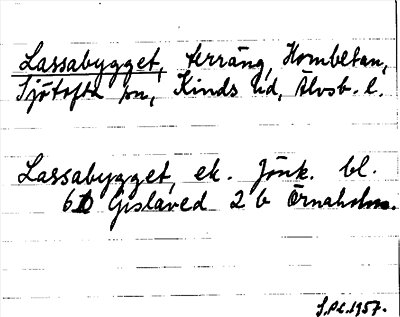 Lassabygget, terräng, Hornbetan,
Sjötofta sn, Kinds hd, Älvsb. l.
Lassabygget, ek. Jönk. bl.
6D Gislaved 2 b Örnaholm.
S.Pl. 1957.